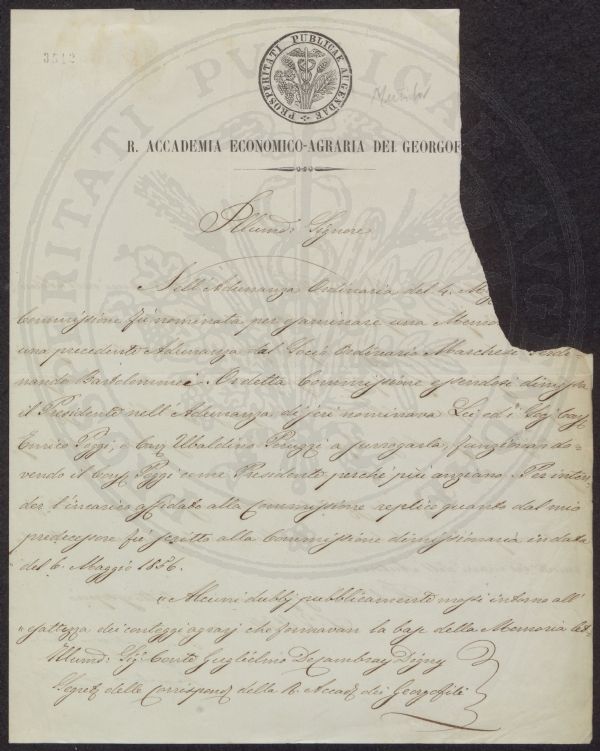 3512
PROSPERITATI PUBLICAE AUGENDAE
R. ACCADEMIA ECONOMICO-AGRARIA DEI GEORGOF
Illumo: Signore
Nell'Adunanza Ordinaria del 4. M
Commissione fu nominata per esaminare una Memo
una precedente Adunanza dal Socio Ordinario Marchese Ferdi
nando Bartolommei. Or detta Commissione essendosi dimessa
il Presidente nell'Adunanza di jeri nominava Lei ed i Sigg: Conss
Enrico Poggi, e Ubaldino Peruzzi a surrogarla, funzionar do-
vendo il Poggi come Presidente perché più anziano. Per inten
der l'incarico affidato alla Commissione replico quanto dal mio
predecessore fu scritto alla Commissione dimissionaria in data
del 6. Maggio 1856.
"Alcuni dubbj pubblicamente mossi intorno all'
"esattezza dei conteggi agrarj che formavan la base della Memoria let-
Illumo: Sig: Conte Guglielmo De Cambray Digny
Segreto delle Corrispondz della R. Accadа dei Georgofili